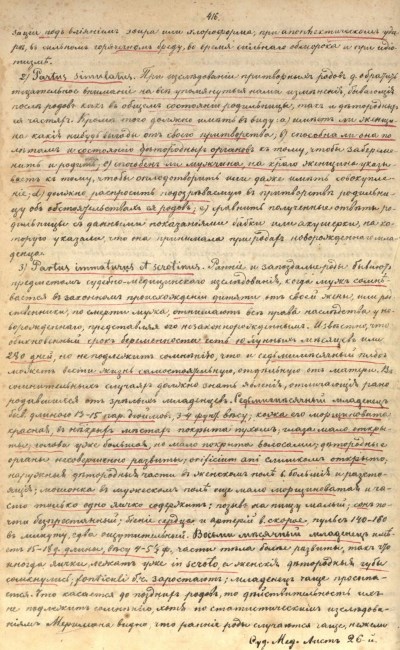 416.
зація подъ вліяніемъ эѳира или хлороформа; при апоплектическомъ уда-
рѣ, въ сильномъ горячечномъ бреду, во время сильнаго обморока и при идіо-
тизмѣ.
2) Partus simulatus. При изслѣдованіи притворныхъ родовъ д. обратить
тщательное вниманіе на всѣ упомянутыя нами измѣненія, бывающія
послѣ родовъ какъ въ общемъ состояніи родильницы, такъ и дѣтородныхъ
ея частяхъ. Кромѣ того должно имѣть въ виду: а) имѣетъ ли женщи-
на какія нибудь выгоды отъ своего притворства, b) способна ли она по
лѣтамъ и состоянію дѣтородныхъ органовъ къ тому, чтобы забереме-
нѣть и родить; с) способенъ ли мужчина, на котораго женщина указы-
ваетъ къ тому, чтобы оплодотворить или даже имѣть совокупле-
ніе; d) должно распросить подозрѣваемую въ притворствѣ родильни-
цу объ обстоятельствахъ ея родовъ; е) сравнить полученные отвѣты ро-
дильницы съ данными показаніями бабки или акушерки, на ко-
торую указали, что она принимала при родахъ новорожденнаго мла-
денца.
3) Partus immaturus et serotinus. Ранніе и запоздалые роды бываютъ
предметомъ судебно-медицинскаго изслѣдованія, когда мужъ сомнѣ-
вается въ законномъ происхожденіи дитяти отъ своей жены, или род-
ственники, по смерти мужа, отнимаютъ всѣ права наслѣдства у но-
ворожденнаго, представляя его незаконнорожденнымъ. Извѣстно, что
обыкновенный срокъ беременности есть 10 лунныхъ мѣсяцевъ или
280 дней, но не подлежитъ сомнѣнію, что и седьмимѣсячный плодъ
можетъ вести жизнь самостоятельную, отдѣльную отъ матери. Въ
сомнительныхъ случаяхъ должно знать явленія, отличающія рано
родившихся отъ зрѣлыхъ младенцевъ. Седьмимѣсячный младенецъ
быв. длиною 13-15 пар. дюймовъ, 3-4 фунт. вѣсу; кожа его морщиновата
красная, въ нѣкотор. мѣстахъ покрыта пухомъ; глаза мало откры-
ты, голова уже большая, но мало покрыта волосами; дѣтородные
органы несовершенно развиты; orificium ani слишкомъ открыто,
наружныя дѣтородныя части въ женскомъ полѣ б. большія и разстоя-
щія; мошонка въ мужескомъ полѣ еще мало морщиноватая и ча-
сто только одно яичко содержитъ; позывъ на пищу малый; сонъ по-
чти безпрестанный; біеніе сердца и артерій б. скорое, пульсъ 140-180
въ минуту, едва ощутительный. Восьми мѣсячный младенецъ имѣ-
етъ 15-18 д. длины, вѣсу 4-5½ ф., части тѣла болѣе развиты, такъ что
иногда яички лежатъ уже in scroto, а женскія дѣтородныя губы
сомкнулись; роднички б. ч. заростаютъ; младенецъ чаще просыпа-
ется. Что касается до позднихъ родовъ, то дѣйствительность ихъ
не подлежитъ сомнѣнію, хотя по статистическимъ изслѣдова-
ніямъ Меримана видно, что ранніе роды случаются чаще, нежели
Суд. Мед. Листъ 26. й.